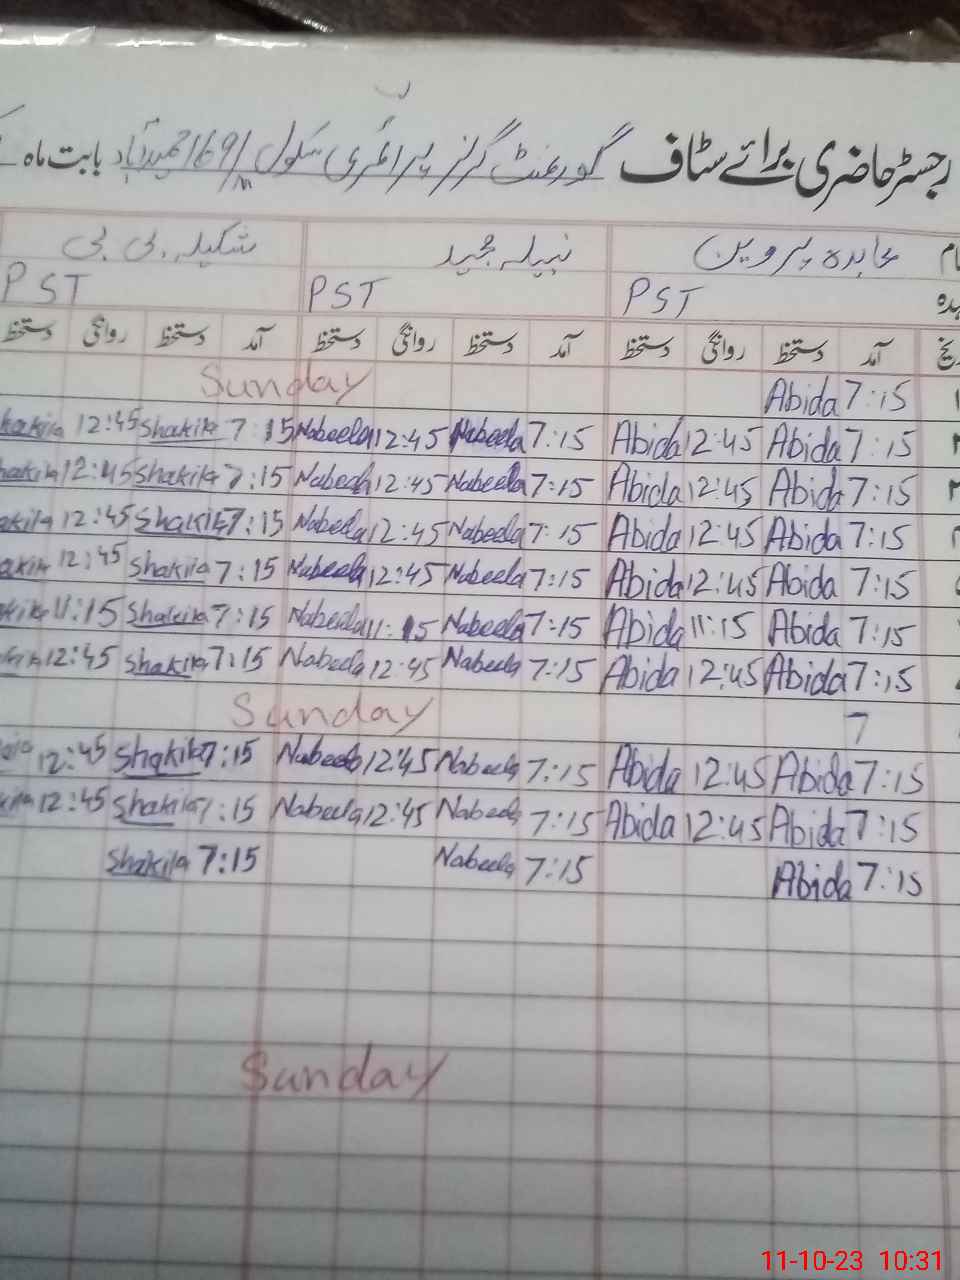 رجسٹر حاضری برائے سٹاف گورنمنٹ گرلز پرائمری سکول 169/M حمیدآباد بابت ماہ
عابدہ پروین نبیلہ مجید شکیلہ بی بی
PST PST PST
آمد دستخط روانگی دستخط آمد دستخط روانگی دستخط آمد دستخط روانگی دستخط
Sunday Abida 7:15
12:45 Shakila 7:15 Nabeela 12:45 Nabeela 7:15 Abida 12:45 Abida 7:15
12:45 Shakila 7:15 Nabeela 12:45 Nabeela 7:15 Abida 12:45 Abida 7:15
12:45 Shakila 7:15 Nabeela 12:45 Nabeela 7:15 Abida 12:45 Abida 7:15
12:45 Shakila 7:15 Nabeela 12:45 Nabeela 7:15 Abida 12:45 Abida 7:15
11:15 Shakila 7:15 Nabeela 11:15 Nabeela 7:15 Abida 11:15 Abida 7:15
12:45 Shakila 7:15 Nabeela 12:45 Nabeela 7:15 Abida 12:45 Abida 7:15
Sunday 7
12:45 Shakila 7:15 Nabeela 12:45 Nabeela 7:15 Abida 12:45 Abida 7:15
12:45 Shakila 7:15 Nabeela 12:45 Nabeela 7:15 Abida 12:45 Abida 7:15
Shakila 7:15 Nabeela 7:15 Abida 7:15
Sunday
11-10-23 10:31